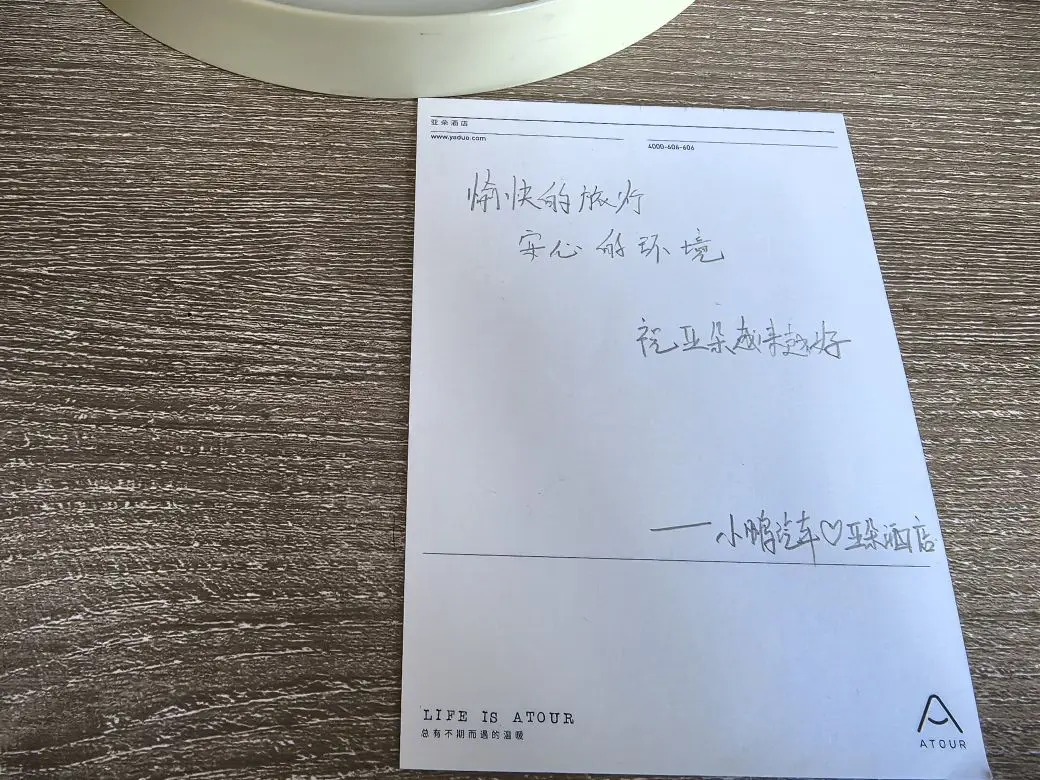 亚朵酒店
www.yaduo.com
4000-606-606
愉快的旅行
安心的环境
祝亚朵越来越好
——小鹏汽车♡亚朵酒店
LIFE IS ATOUR
总有不期而遇的温暖
ATOUR